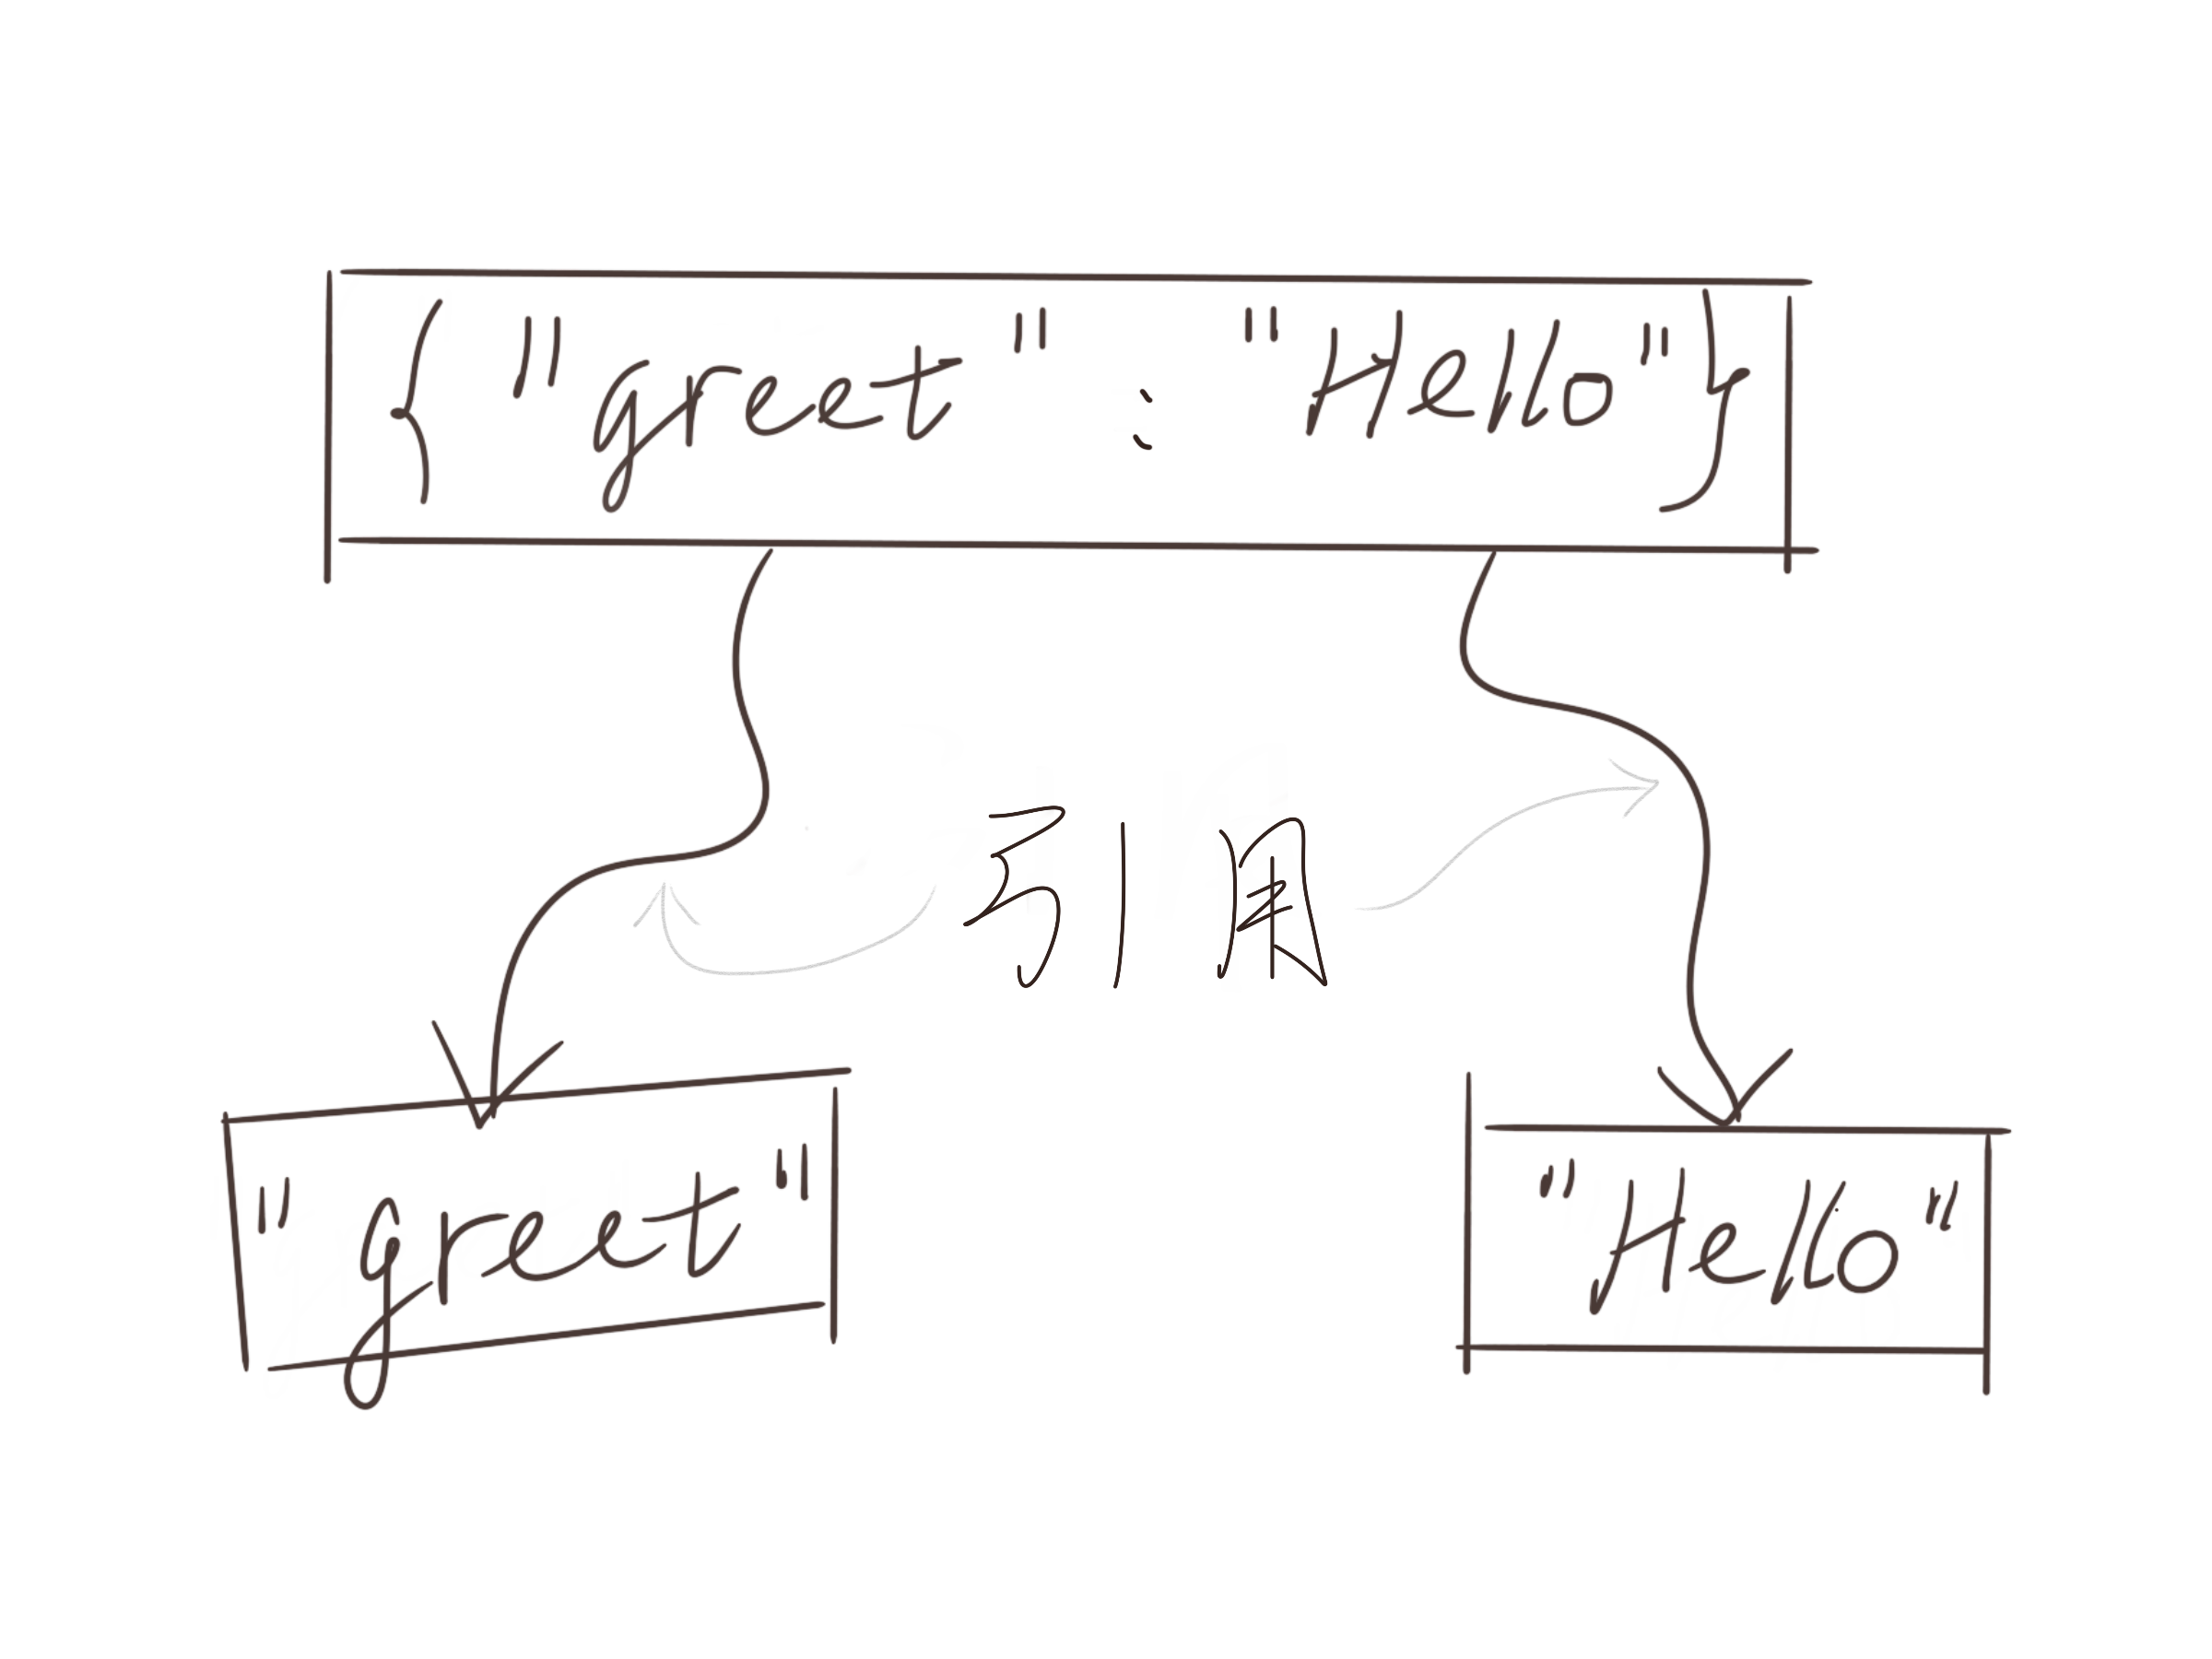 { "greet" : "Hello"}
引用
"greet"
"Hello"